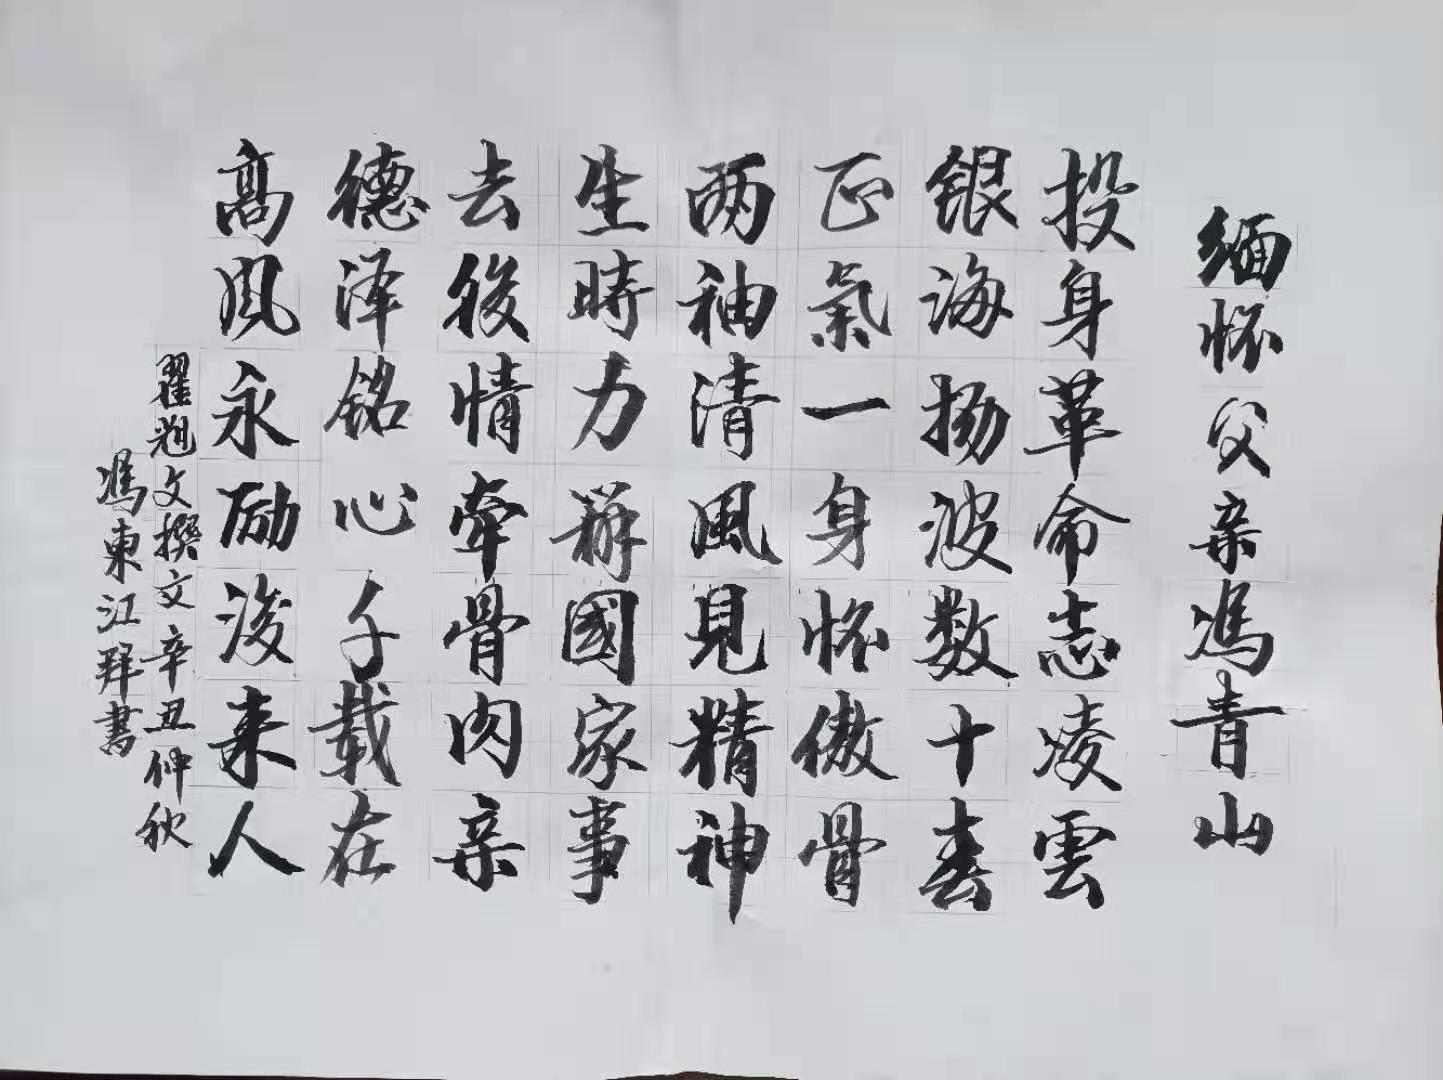 缅怀父亲馮青山
投身革命志凌雲
銀海扬波数十春
正氣一身怀傲骨
两袖清風見精神
生時力辦國家事
去後情牽骨肉亲
德泽铭心千载在
高风永励後来人
翟兆文撰文辛丑仲秋
馮東江拜書